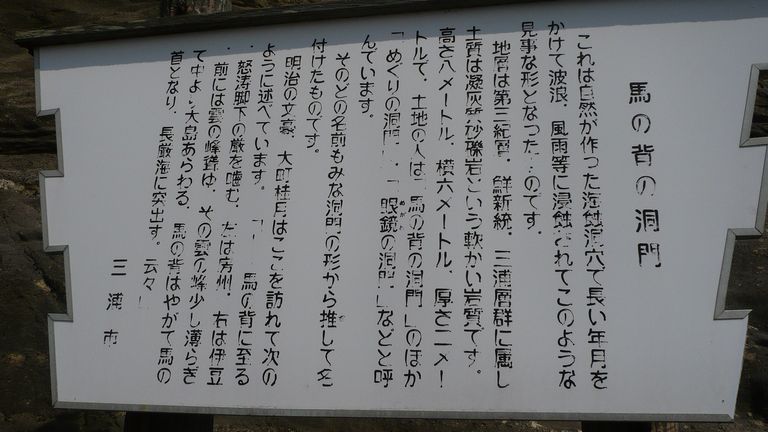 馬の背の洞門
これは自然が作った海蝕洞穴で長い年月を
かけて波浪、風雨等に浸蝕されてこのような
見事な形となったものです。
地層は第三紀層・鮮新統、三浦層群に属し
土質は凝灰質砂礫岩という軟かい岩質です。
高さ八メートル、横六メートル、厚さ二メー
トルで、土地の人は「馬の背の洞門」のほか
「めぐりの洞門」、「眼鏡の洞門」などと呼
んでいます。
そのどの名前もみな洞門の形から推して名
付けたものです。
明治の文豪、大町桂月はここを訪れて次の
ように述べています。「 馬の背に至る
、怒涛脚下の巌を噛む、左は房州、右は伊豆
、前には雲の峰聳ゆ、その雲の峰少し薄らぎ
て中より大島あらわる、馬の背はやがて馬の
首となり、長巌海に突出す。云々」
三浦市